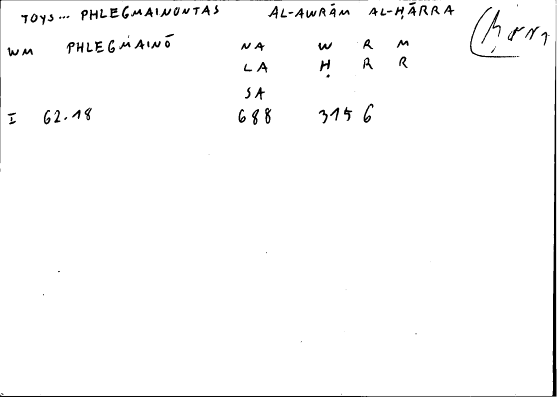 TOYS... PHLEGMAINONTAS AL-AWRĀM AL-ḤĀRRA
WM PHLEGMAINŌ NA W R M
LA Ḥ R R
SA
I 62.18 688 3156